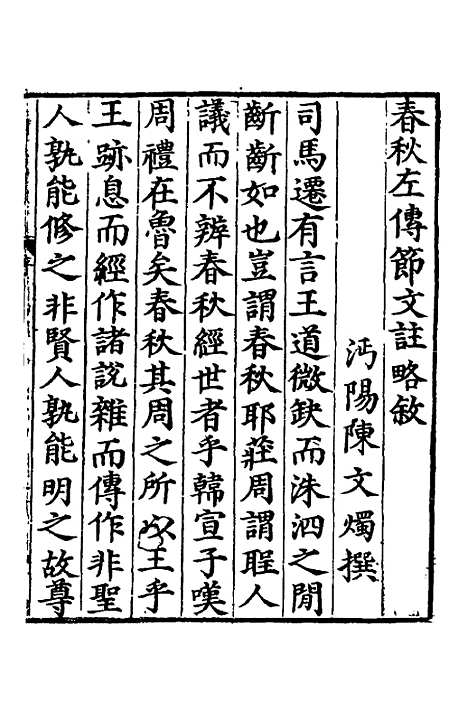 春秋左傳節文註略敘
沔陽陳文燭撰
司馬遷有言王道微缺而洙泗之閒
齗齗如也豈謂春秋耶莊周謂聖人
議而不辨春秋經世者乎韓宣子嘆
周禮在魯矣春秋其周之所以王乎
王跡息而經作諸說雜而傳作非聖
人孰能修之非賢人孰能明之故尊